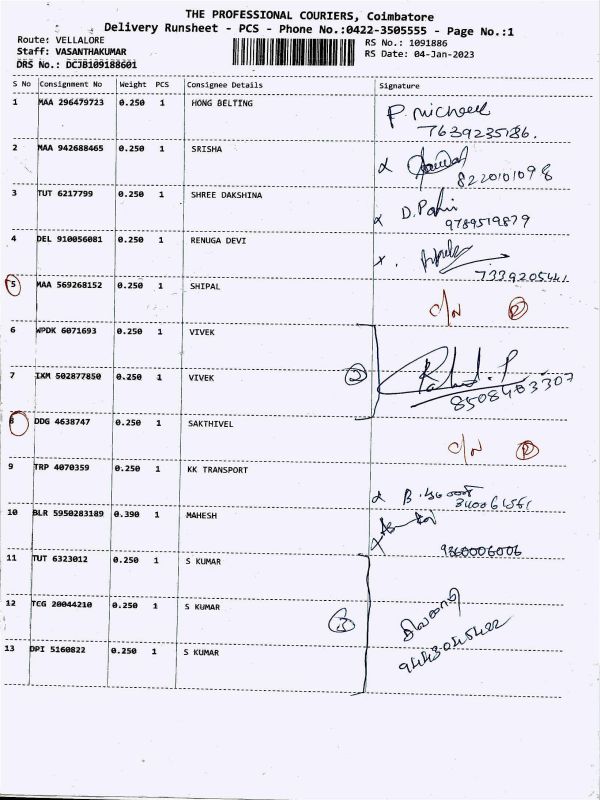 THE PROFESSIONAL COURIERS, Coimbatore
Delivery Runsheet - PCS - Phone No.:0422-3505555 - Page No.:1
Route: VELLALORE
RS No.: 1091886
Staff: VASANTHAKUMAR
RS Date: 04-Jan-2023
DRS No.: DCJB109188601
S No Consignment No Weight PCS Consignee Details Signature
1 MAA 296479723 0.250 1 HONG BELTING P. Micheal
7639235186.
2 MAA 942688465 0.250 1 SRISHA
8220101098
3 TUT 6217799 0.250 1 SHREE DAKSHINA D. Palni
9789519879
4 DEL 910056081 0.250 1 RENUGA DEVI
7339205441
5 MAA 569268152 0.250 1 SHIPAL C/N
6 WPDK 6071693 0.250 1 VIVEK
7 IKM 502877850 0.250 1 VIVEK 2
8508483307
8 DDG 4638747 0.250 1 SAKTHIVEL C/N
9 TRP 4070359 0.250 1 KK TRANSPORT
10 BLR 5950283189 0.390 1 MAHESH
9360006006
11 TUT 6323012 0.250 1 S KUMAR
12 TCG 20044210 0.250 1 S KUMAR 3
13 DPI 5160822 0.250 1 S KUMAR
9443045422